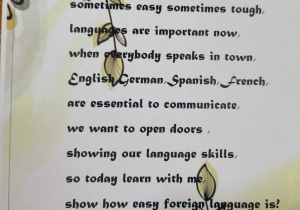 sometimes easy sometimes tough,
languages are important now,
when everybody speaks in town,
English,German,Spanish,French,
are essential to communicate,
we want to open doors ,
showing our language skills,
so today learn with me,
show how easy foreign language is!